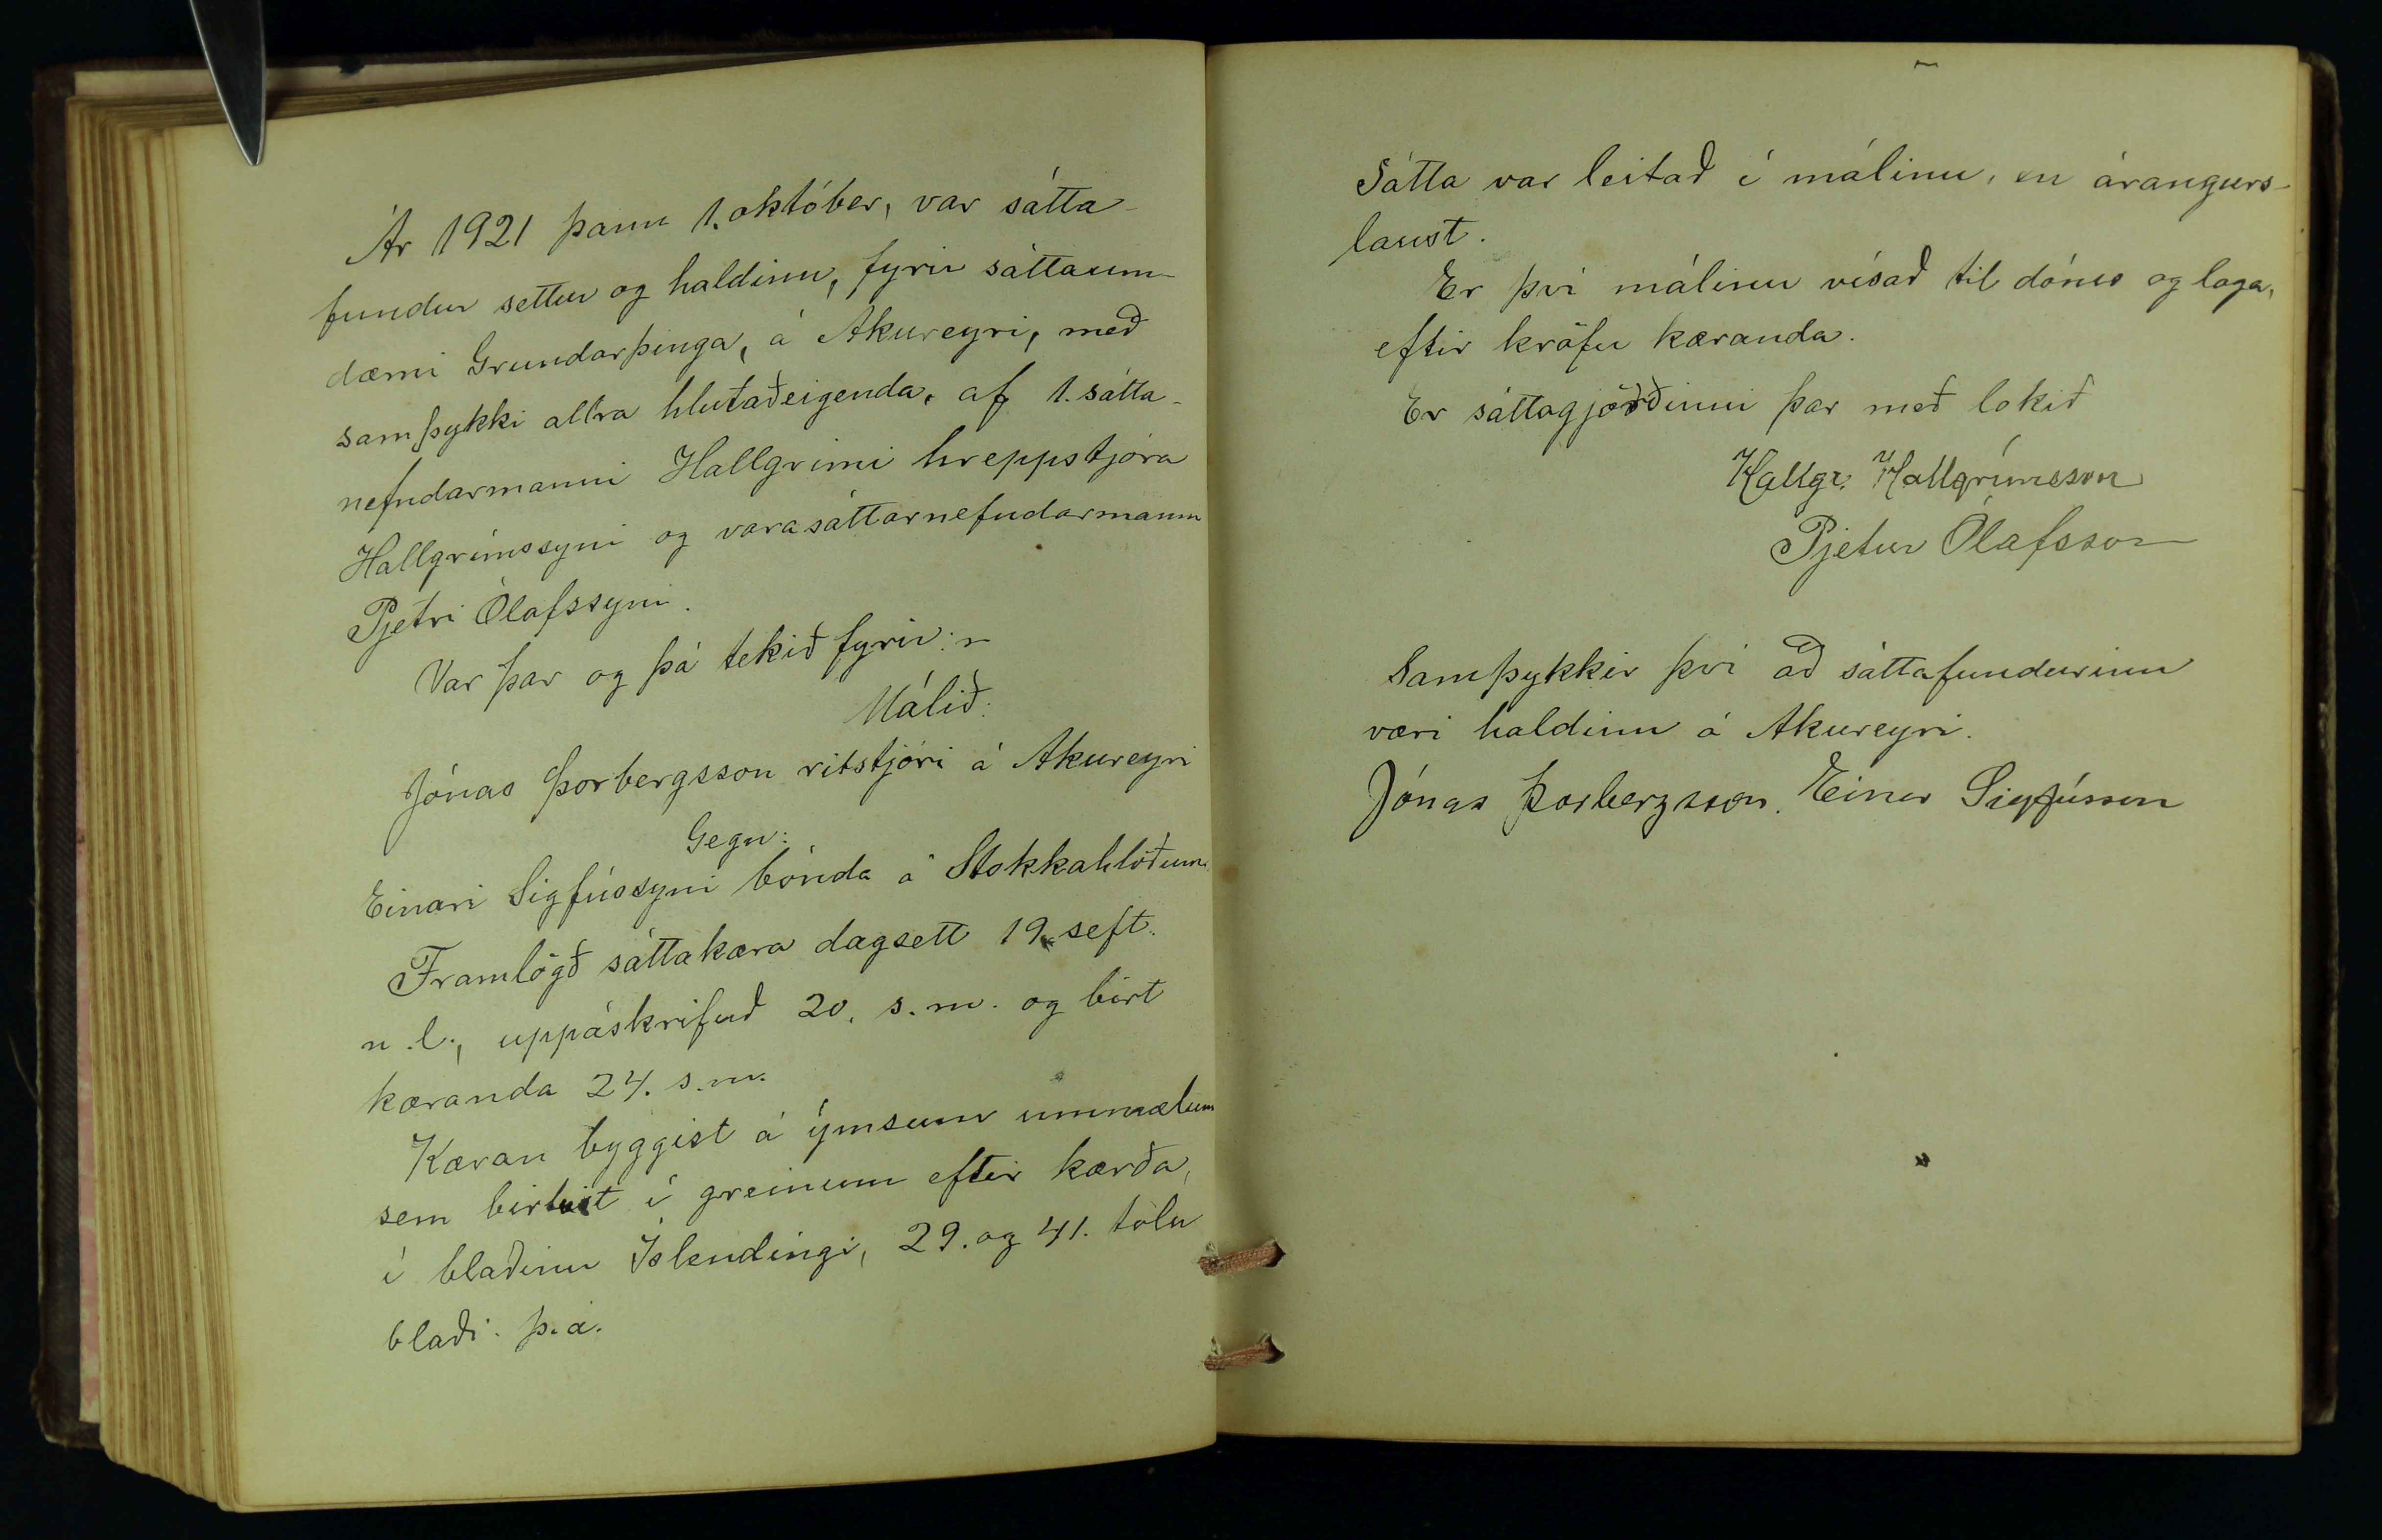 Ár 1921 þann 1. október, var sátta-
fundur settur og haldinn, fyrir sáttaum-
dæmi Grundarþinga, á Akureyri, með
samþykki allra hlutaðeigenda, af 1. sátta-
nefndarmanni Hallgrími hreppstjóra
Hallgrímssyni og varasáttarnefndarmann
Pjetri Ólafssyni.
Var þar og þá tekið fyrir:
Málið:
Jónas Þorbergsson ritstjóri á Akureyri
Gegn:
Einari Sigfússyni bónda á Stokkahlöðum.
Framlögð sáttakæra dagsett 19. seft.
n.l., uppáskrifuð 20. s.m. og birt
kæranda 24. s.m.
Kæran byggist á ýmsum ummælum
sem birtust í greinum eftir kærða,
í blaðinu Íslendingi, 29. og 41. tölu
blaði. þ.á.
Sátta var leitað í málinu, en árangurs-
laust.
Er því málinu vísað til dóms og laga,
eftir kröfu kæranda.
Er sáttagjörðinni þar með lokið
Hallgr. Hallgrímsson
Pjetur Ólafsson
Samþykkir því að sáttafundurinn
væri haldinn á Akureyri.
Jónas Þorbergsson. Einar Sigfússon